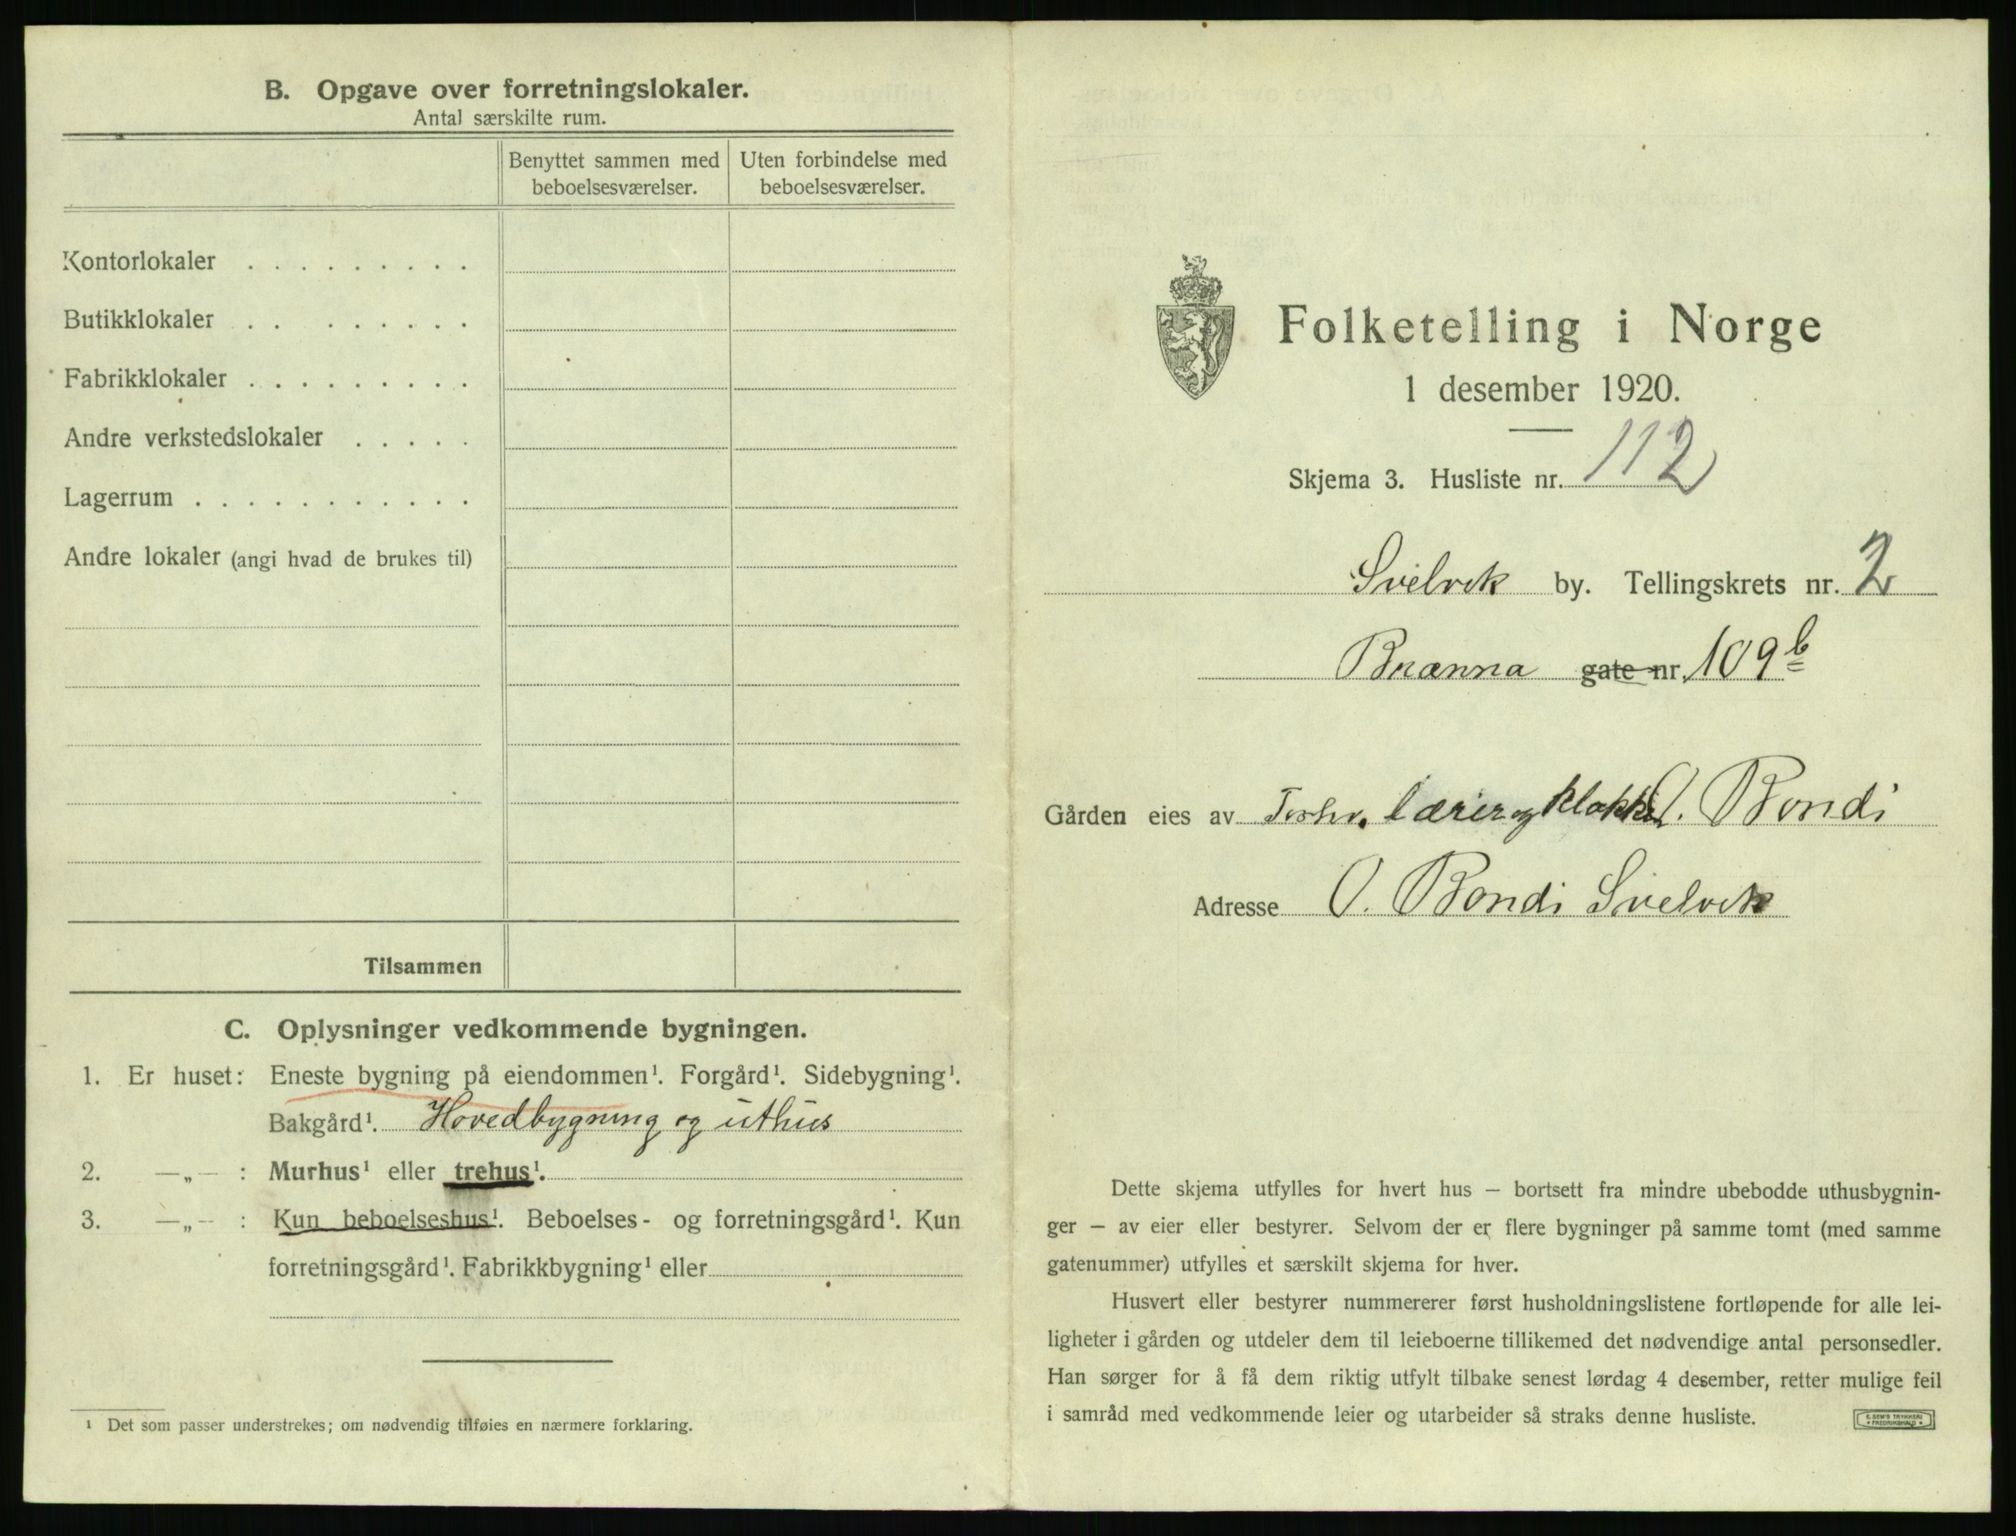 B. Opgave over forretningslokaler.
Antal særskilte rum.
Benyttet sammen med beboelsesværelser.
Uten forbindelse med beboelsesværelser.
Kontorlokaler . . . . . . . . .
Butikklokaler . . . . . . . .
Fabrikklokaler . . . . . . . . .
Andre verkstedslokaler . . . . .
Lagerrum . . . . . . . . . . .
Andre lokaler (angi hvad de brukes til)
Tilsammen
C. Oplysninger vedkommende bygningen.
1. Er huset: Eneste bygning på eiendommen¹. Forgård¹. Sidebygning¹.
Bakgård¹. Hovedbygning og uthus
2. —„— : Murhus¹ eller trehus¹.
3. —„— : Kun beboelseshus¹. Beboelses- og forretningsgård¹. Kun
forretningsgård¹. Fabrikkbygning¹ eller
¹ Det som passer understrekes; om nødvendig tilføies en nærmere forklaring.
Folketelling i Norge
1 desember 1920.
Skjema 3. Husliste nr. 112
Svelvik by. Tellingskrets nr. 2
Brænna gate nr. 109 b
Gården eies av lærer og klokker O. Bondi
Adresse O. Bondi Svelvik
Dette skjema utfylles for hvert hus – bortsett fra mindre ubebodde uthusbygnin-
ger – av eier eller bestyrer. Selvom der er flere bygninger på samme tomt (med samme
gatenummer) utfylles et særskilt skjema for hver.
Husvert eller bestyrer nummererer først husholdningslistene fortløpende for alle lei-
ligheter i gården og utdeler dem til leieboerne tillikemed det nødvendige antal personsedler.
Han sørger for å få dem riktig utfylt tilbake senest lørdag 4 desember, retter mulige feil
i samråd med vedkommende leier og utarbeider så straks denne husliste.
E. SEM'S TRYKKERI
FREDRIKSHALD